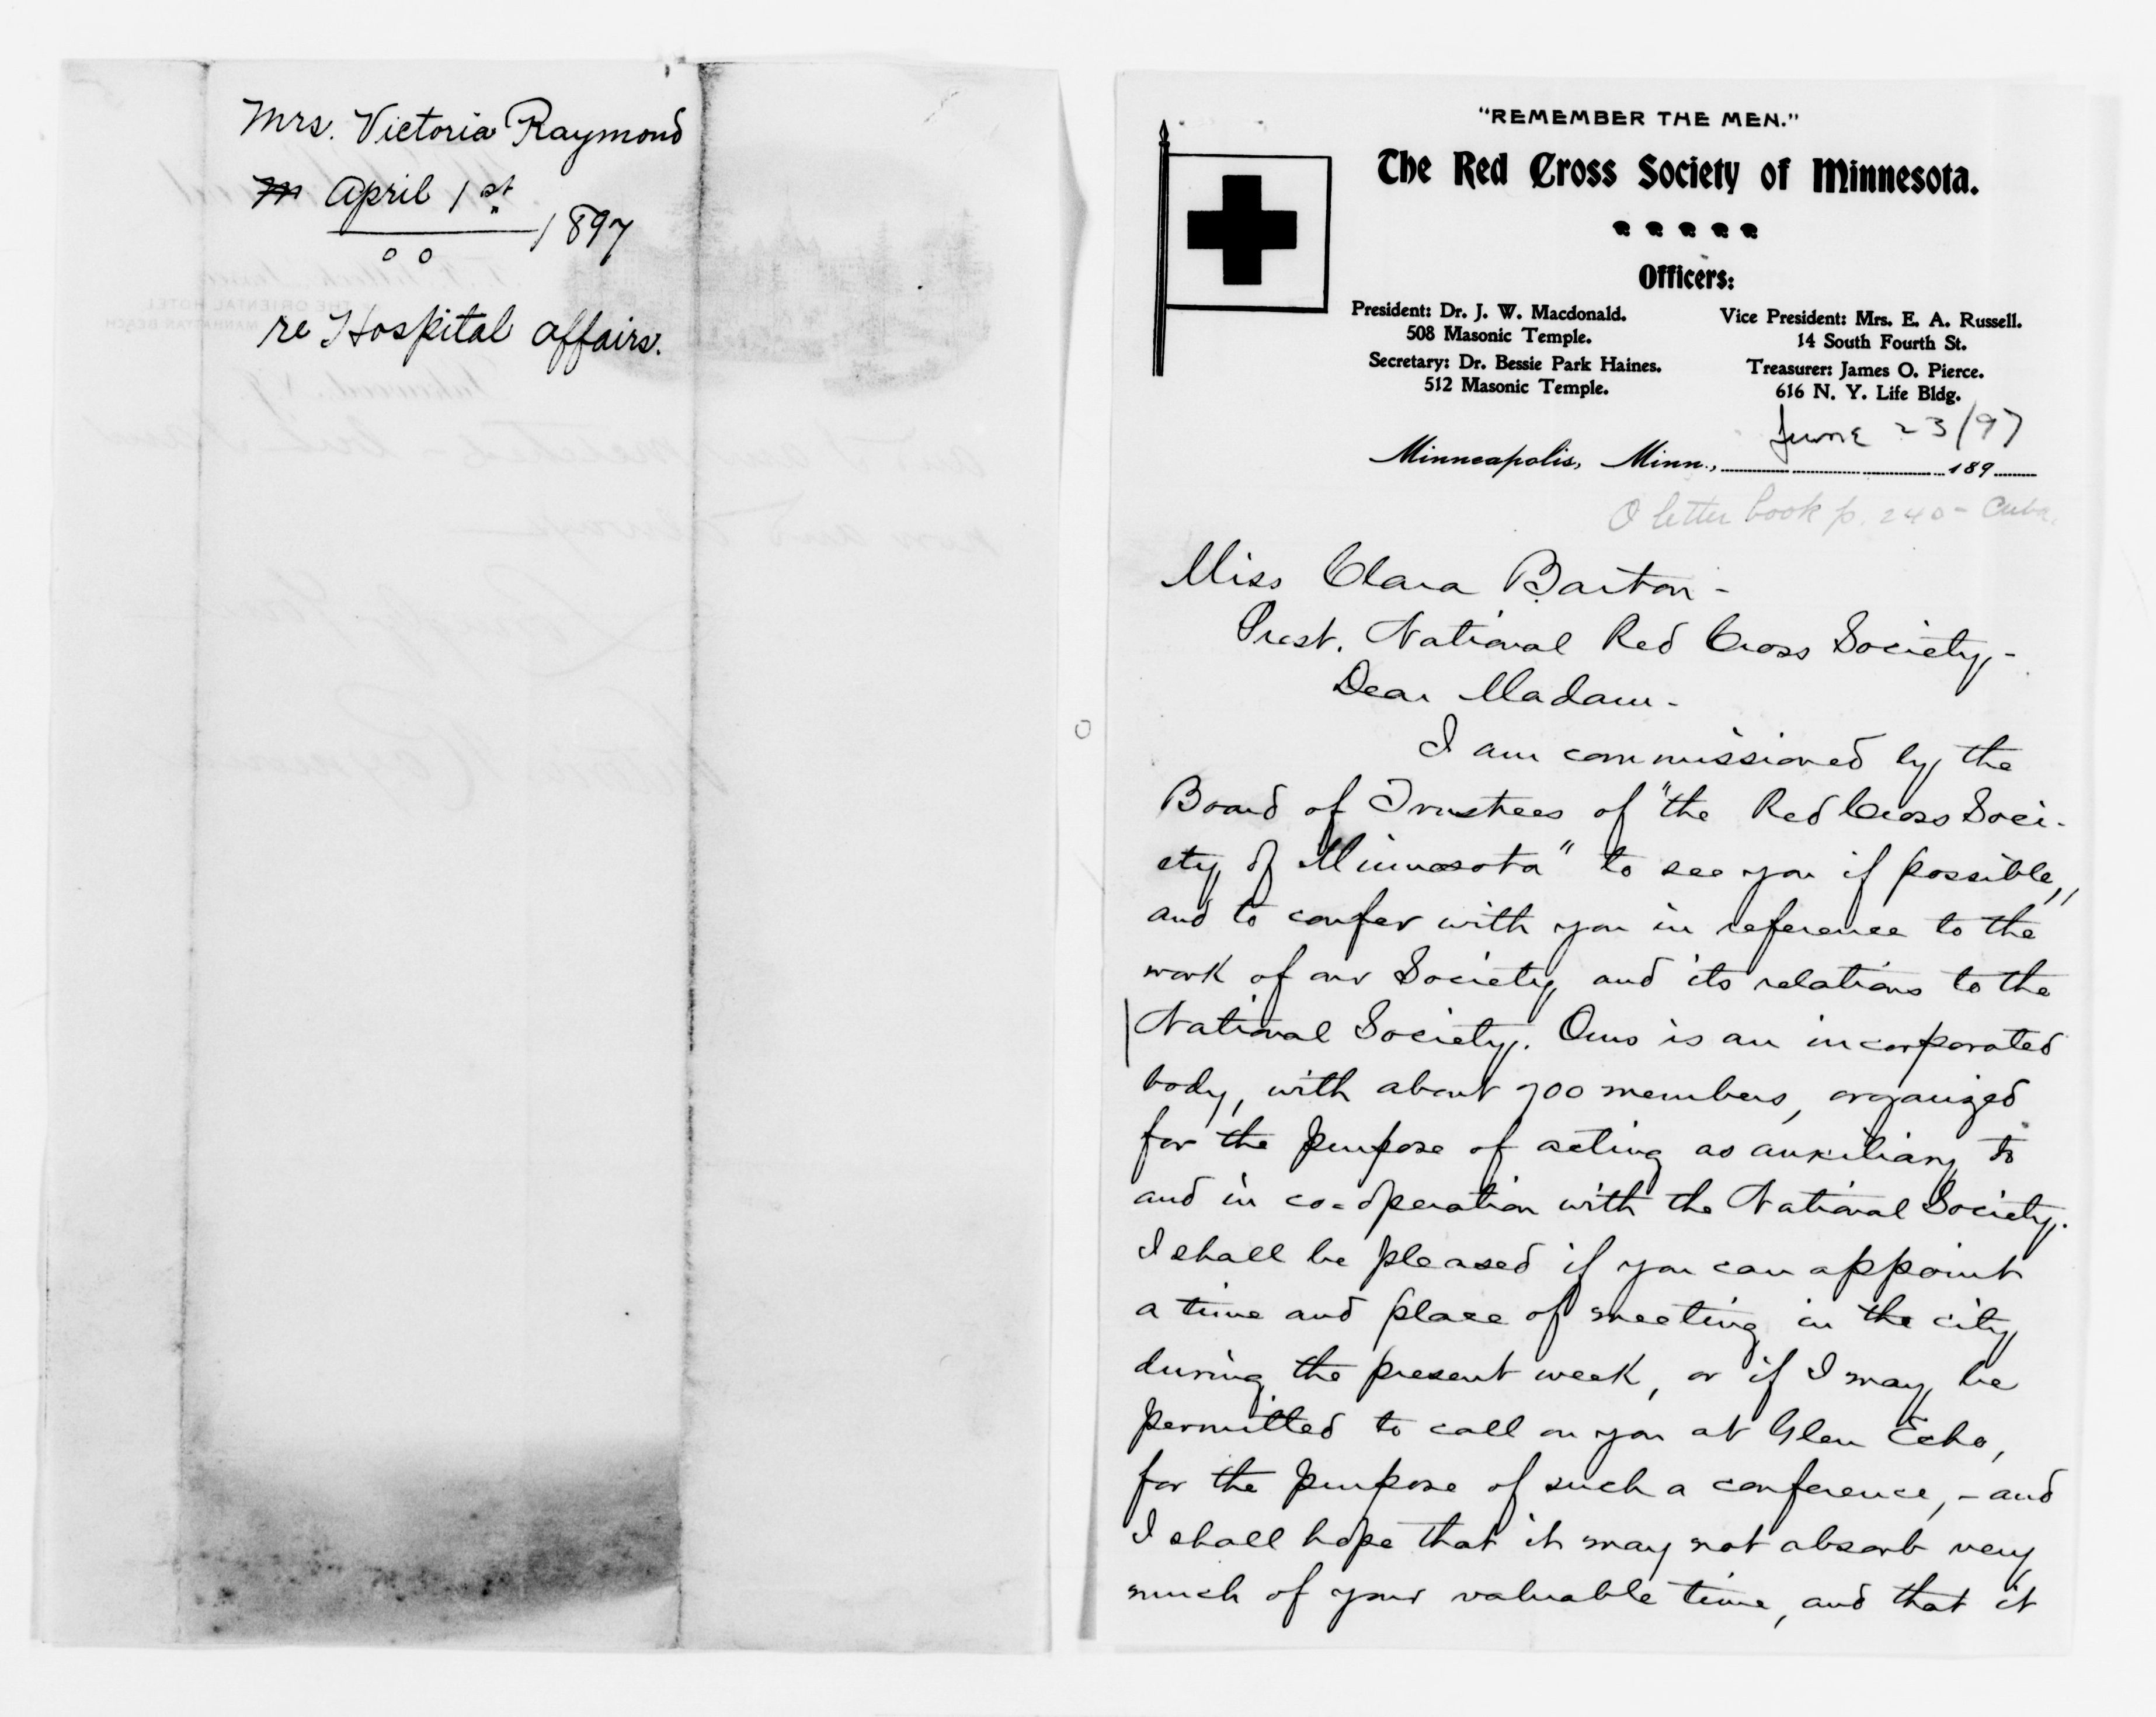 Mrs. Victoria Raymond
April 1st 1897
re Hospital affairs.
"REMEMBER THE MEN."
The Red Cross Society of Minnesota.
Officers:
President: Dr. J. W. Macdonald.
508 Masonic Temple.
Secretary: Dr. Bessie Park Haines.
512 Masonic Temple.
Vice President: Mrs. E. A. Russell.
14 South Fourth St.
Treasurer: James O. Pierce.
616 N. Y. Life Bldg.
June 23/97
Minneapolis, Minn., 189
letter book p. 240 - Cuba.
Miss Clara Barton -
Prest. National Red Cross Society, -
Dear Madam -
I am commissioned by the
Board of Trustees of "the Red Cross Soci-
ety of Minnesota" to see you if possible,
and to confer with you in reference to the
work of our Society and its relations to the
National Society. Ours is an incorporated
body, with about 700 members, organized
for the purpose of acting as auxiliary to
and in co-operation with the National Society.
I shall be pleased if you can appoint
a time and place of meeting in the city
during the present week, or if I may be
permitted to call on you at Glen Echo,
for the purpose of such a conference, - and
I shall hope that it may not absorb very
much of your valuable time, and that it